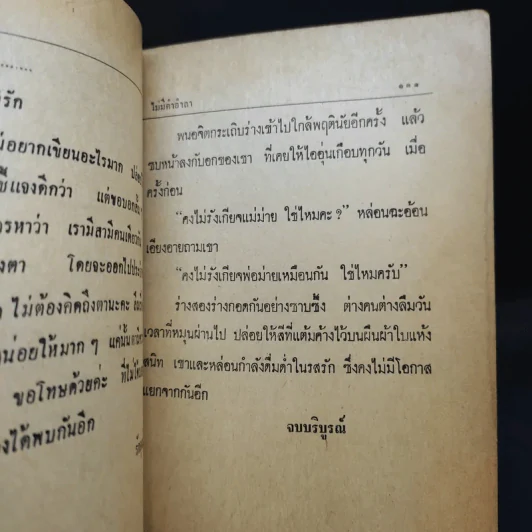 รัก
อยากเขียนอะไรมาก
ชี้แจงดีกว่า แต่ขอบอก
เรามีสามีคนเดียว
โดยจะออกไป
ไม่ต้องคิดถึงตานะคะ
น่อยให้มาก ๆ แค่นั้น
ขอโทษด้วยค่ะ ที่ไม่ได้
งได้พบกันอีก
ไม่มีคำถาม
๑๓๑
พนอจิตกระเถิบร่างเข้าไปใกล้พฤตินัยอีกครั้ง แล้ว
ซบหน้าลงกับอกของเขา ที่เคยให้ไออุ่นเกือบทุกวัน เมื่อ
ครั้งก่อน
“คงไม่รังเกียจแม่ม่าย ใช่ไหมคะ ?” หล่อนฉะอ้อน
เอียงอายถามเขา
“คงไม่รังเกียจพ่อม่ายเหมือนกัน ใช่ไหมครับ”
ร่างสองร่างกอดกันอย่างซาบซึ้ง ต่างคนต่างลืมวัน
เวลาที่หมุนผ่านไป ปล่อยให้สีที่แต้มค้างไว้บนผืนผ้าใบแห้ง
สนิท เขาและหล่อนกำลังดื่มด่ำในรสรัก ซึ่งคงไม่มีโอกาส
แยกจากกันอีก
จบบริบูรณ์